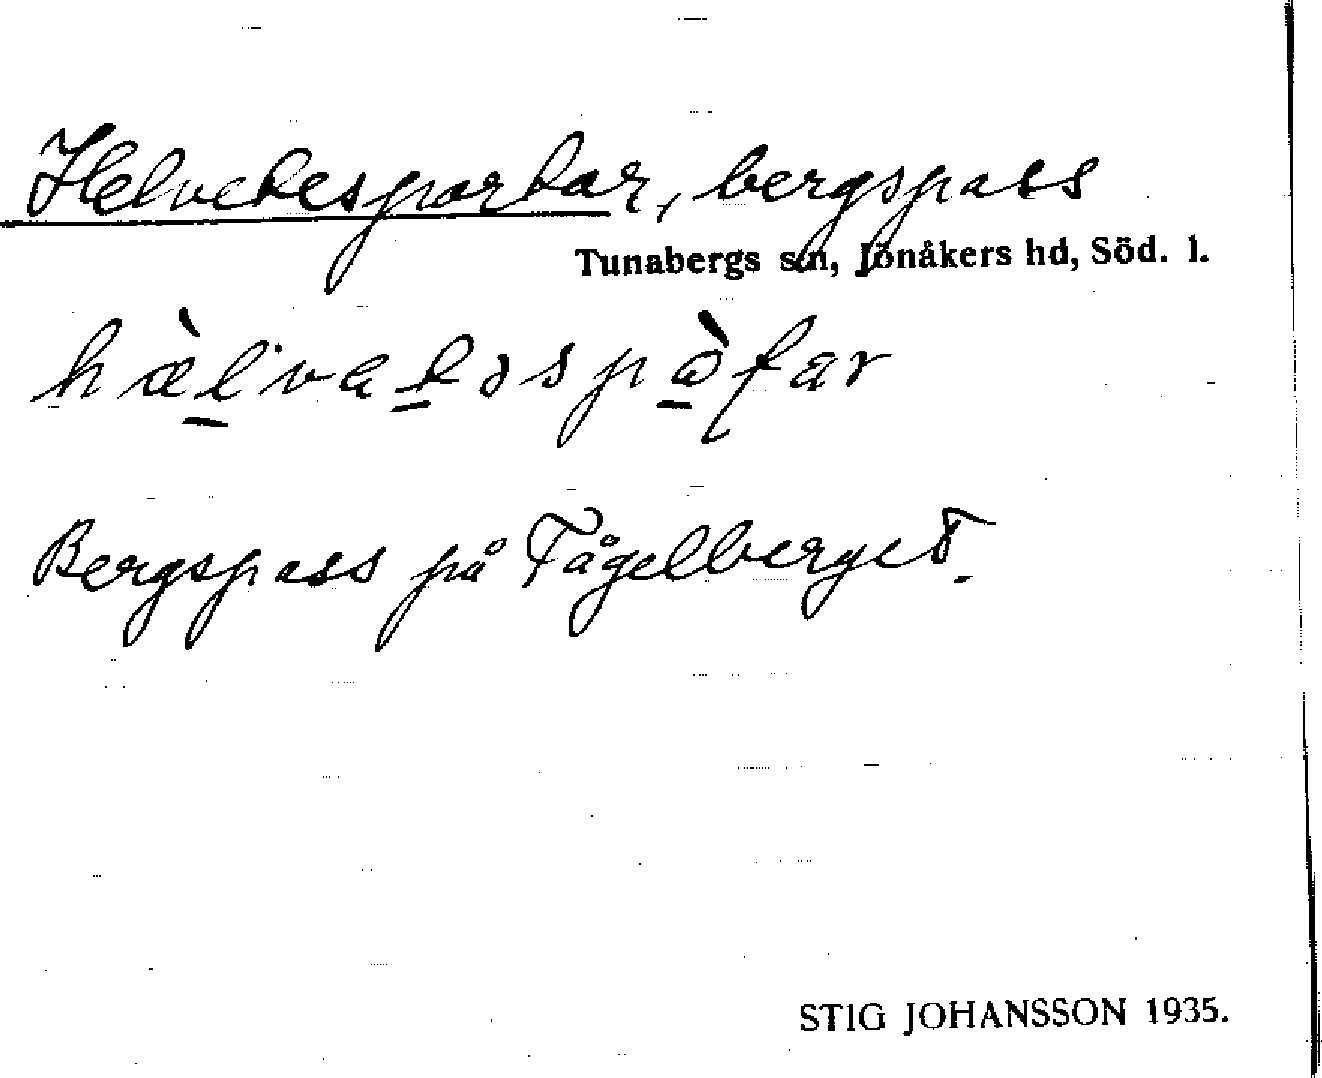 Helvetesportar, bergspass
Tunabergs sn, Jönåkers hd, Söd. l.
Bergspass på Fågelberget.
STIG JOHANSSON 1935.